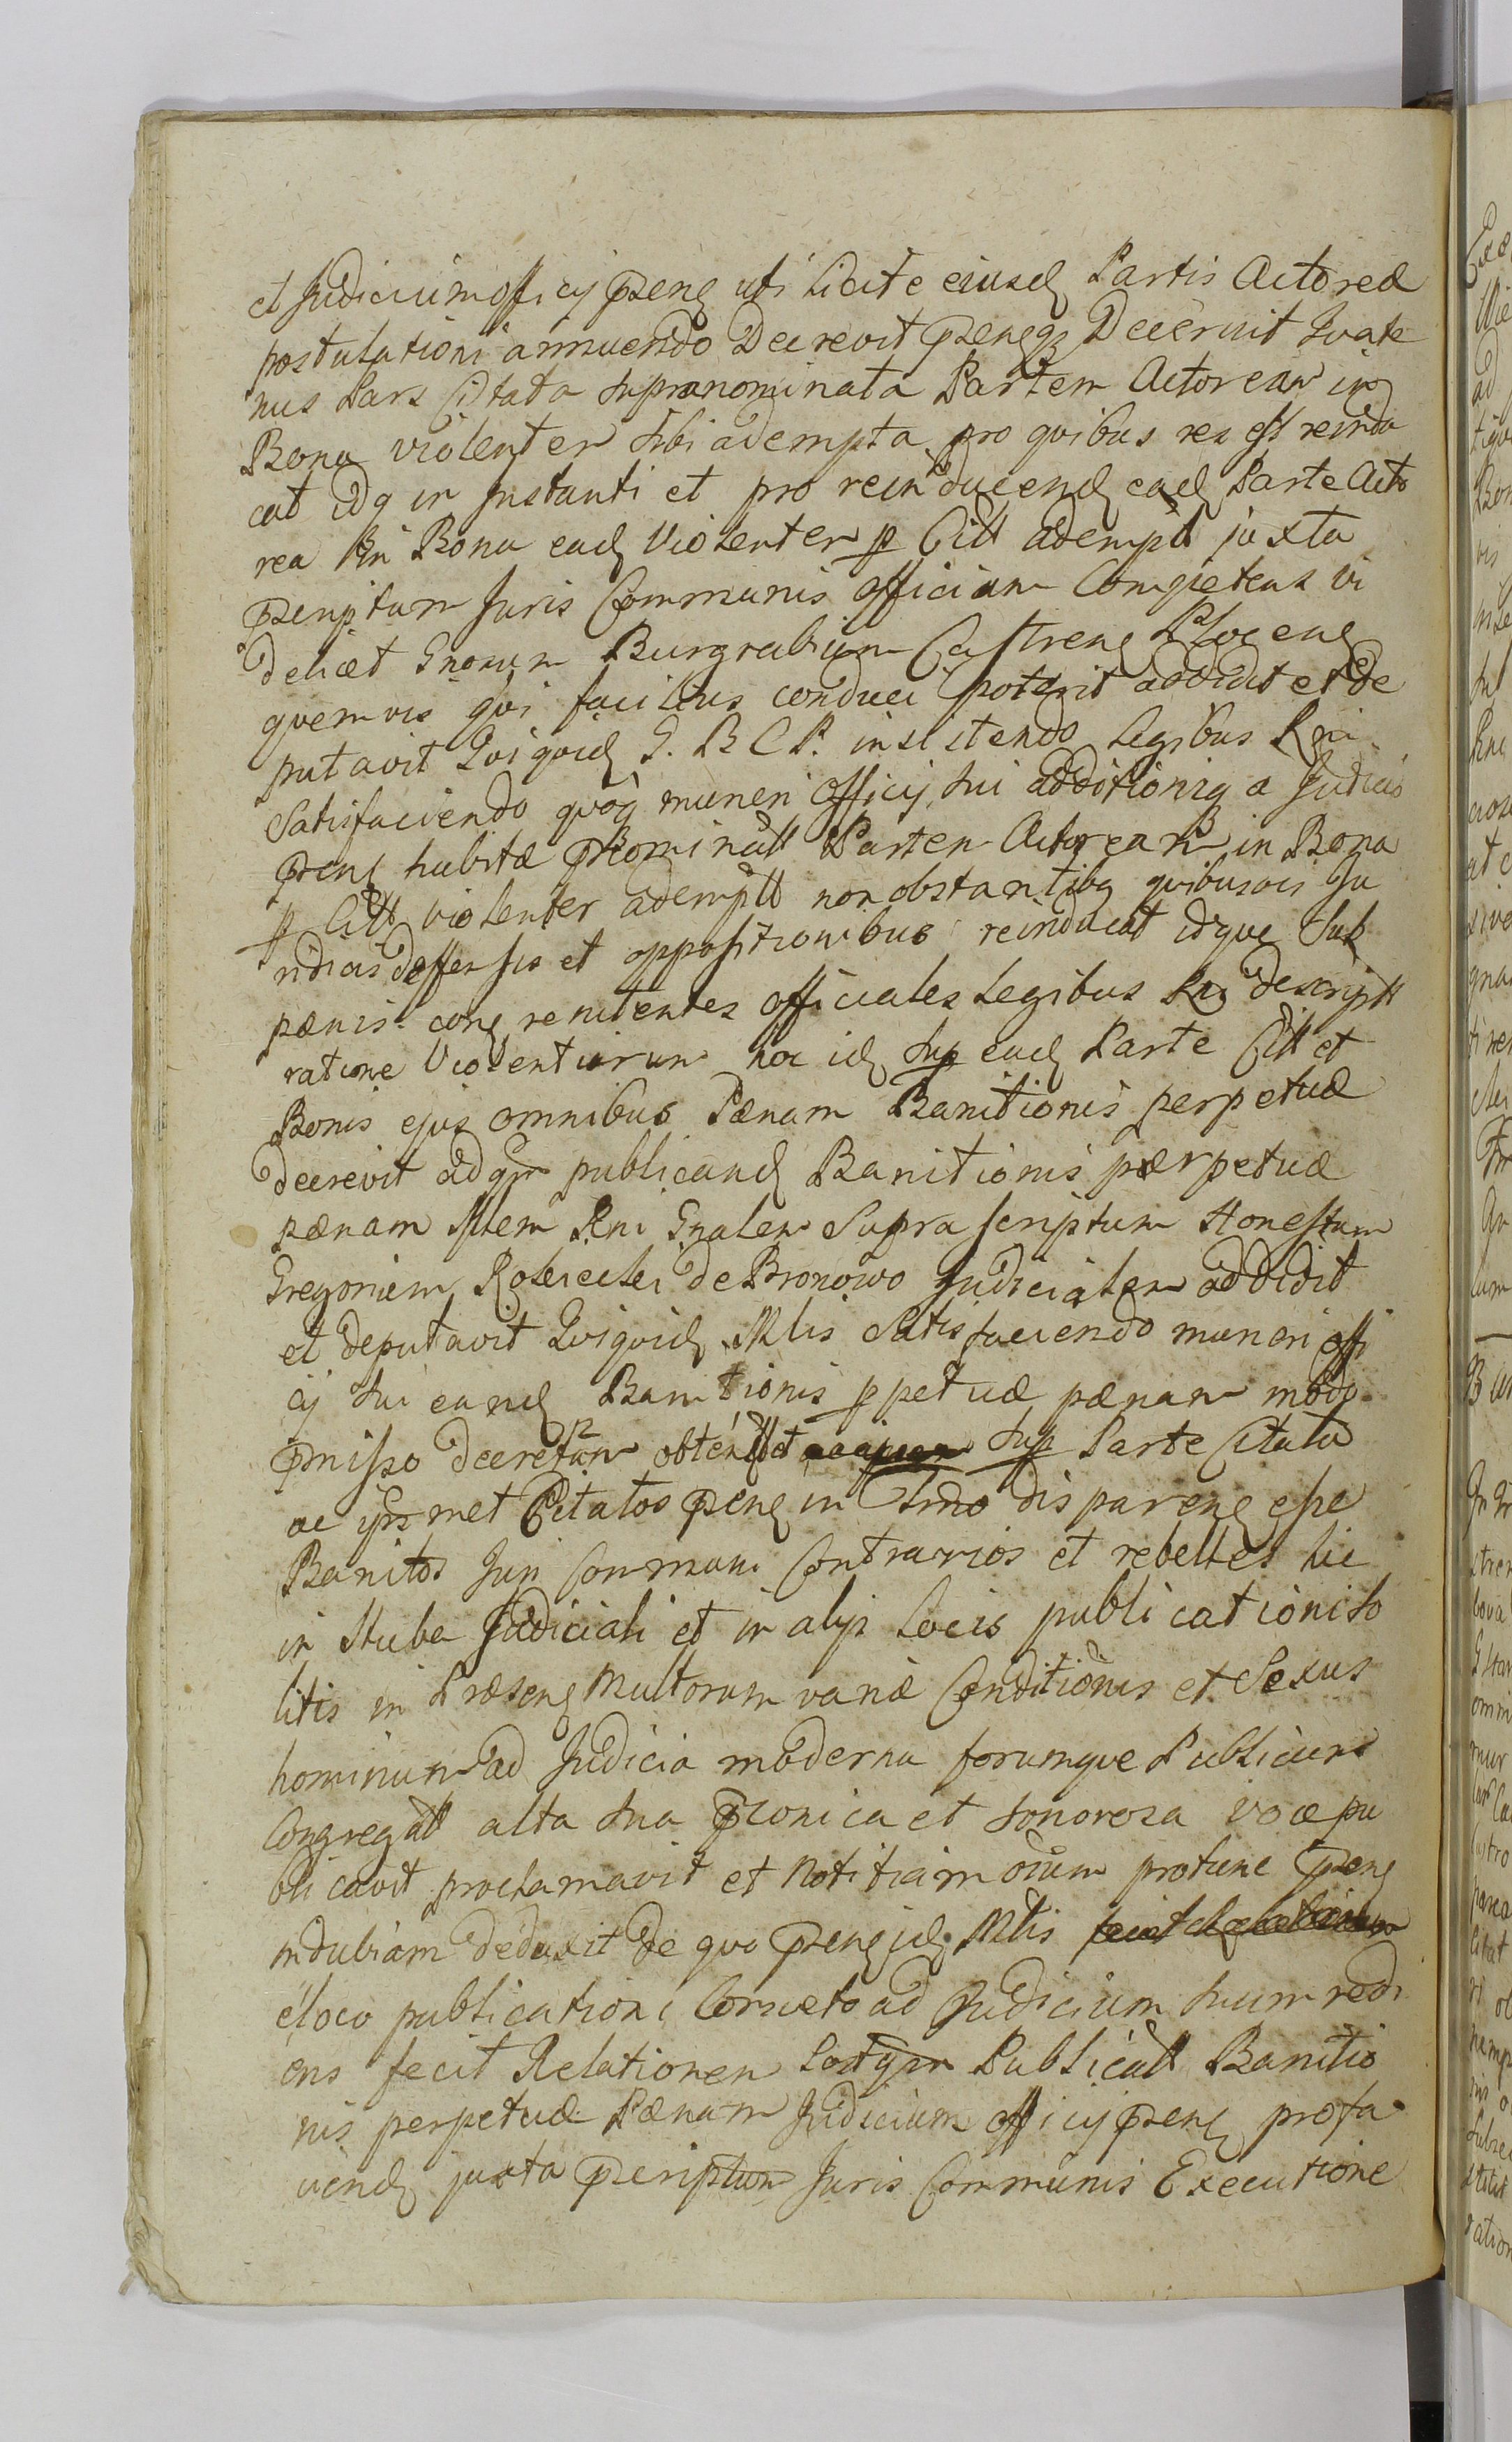 et Judicium officij psens uti licite eiusd Partis Actoreæ
postulationi annuendo Decrevit psensq Decernit Quate
nus Pars Citata Supranominata Partem Actoream in
Bona violenter Sibi adempta, pro quibus res est reindu
cat idq in Instanti et pro reinducend ead Parte Acto
rea in Bona ead Violenter p Citt adempt juxta
pscriptum Juris Communis Officium Competens vi
delicet Gnosum Burgrabium Castrens Plocens
quemvis qui facilius conduci poterit addidit et de
putavit Qui quid G. B C P. insistendo Legibus Rni
Satisfaciendo quoq muneri Officij sui additioniq a Judicio
psens habitæ pnominatt Partem Actoream in Bona
p Citt violenter adempt non obstantibq quibusvis Ju
ridicis deffensis et oppositionibus reinducat idque Sub
pænis cong renitentes officiales Legibus Rni descriptt
ratione Violentiarum hoc id Sup ead Parte Citt et
Bonis ejus omnibus Pænam Banitionis perpetuæ
decrevit ad qm publicand Banitionis perpetuæ
pænam Mtem Rni Gnalem Supra scriptum Honestum
Gregorium de Bronowo Judicialem addidit
et deputavit Qui quid Mtis Satisfaciendo muneri offi
cij sui eand Banitionis ppetuæ pænam modo
pmisso decretam obtent et Sup Parte Citata
ac ipsosmet Citatos psens in Tmno disparens esse
Banitos Juri Communi Contrarios et rebelles hic
in Stuba Judiciali et in alijs Locis publicationi so
litis in Præsens Multorum variæ Conditionis et Sexus
hominum ad Judicia moderna forumque Publicum
Congregatt alta sua pconica et sonorosa voce pu
blicavit proclamavit et Notitiam oium protunc psens
indubiam deduxit de quo psens id Mtis
é loco publicationi Consveto ad Judicium suum redi
ens fecit Relationem Post qm Publicatt Banitio
nis perpetuæ Pænam Judicium officij psens profa
ciend juxta pscriptum Juris Communis Executione